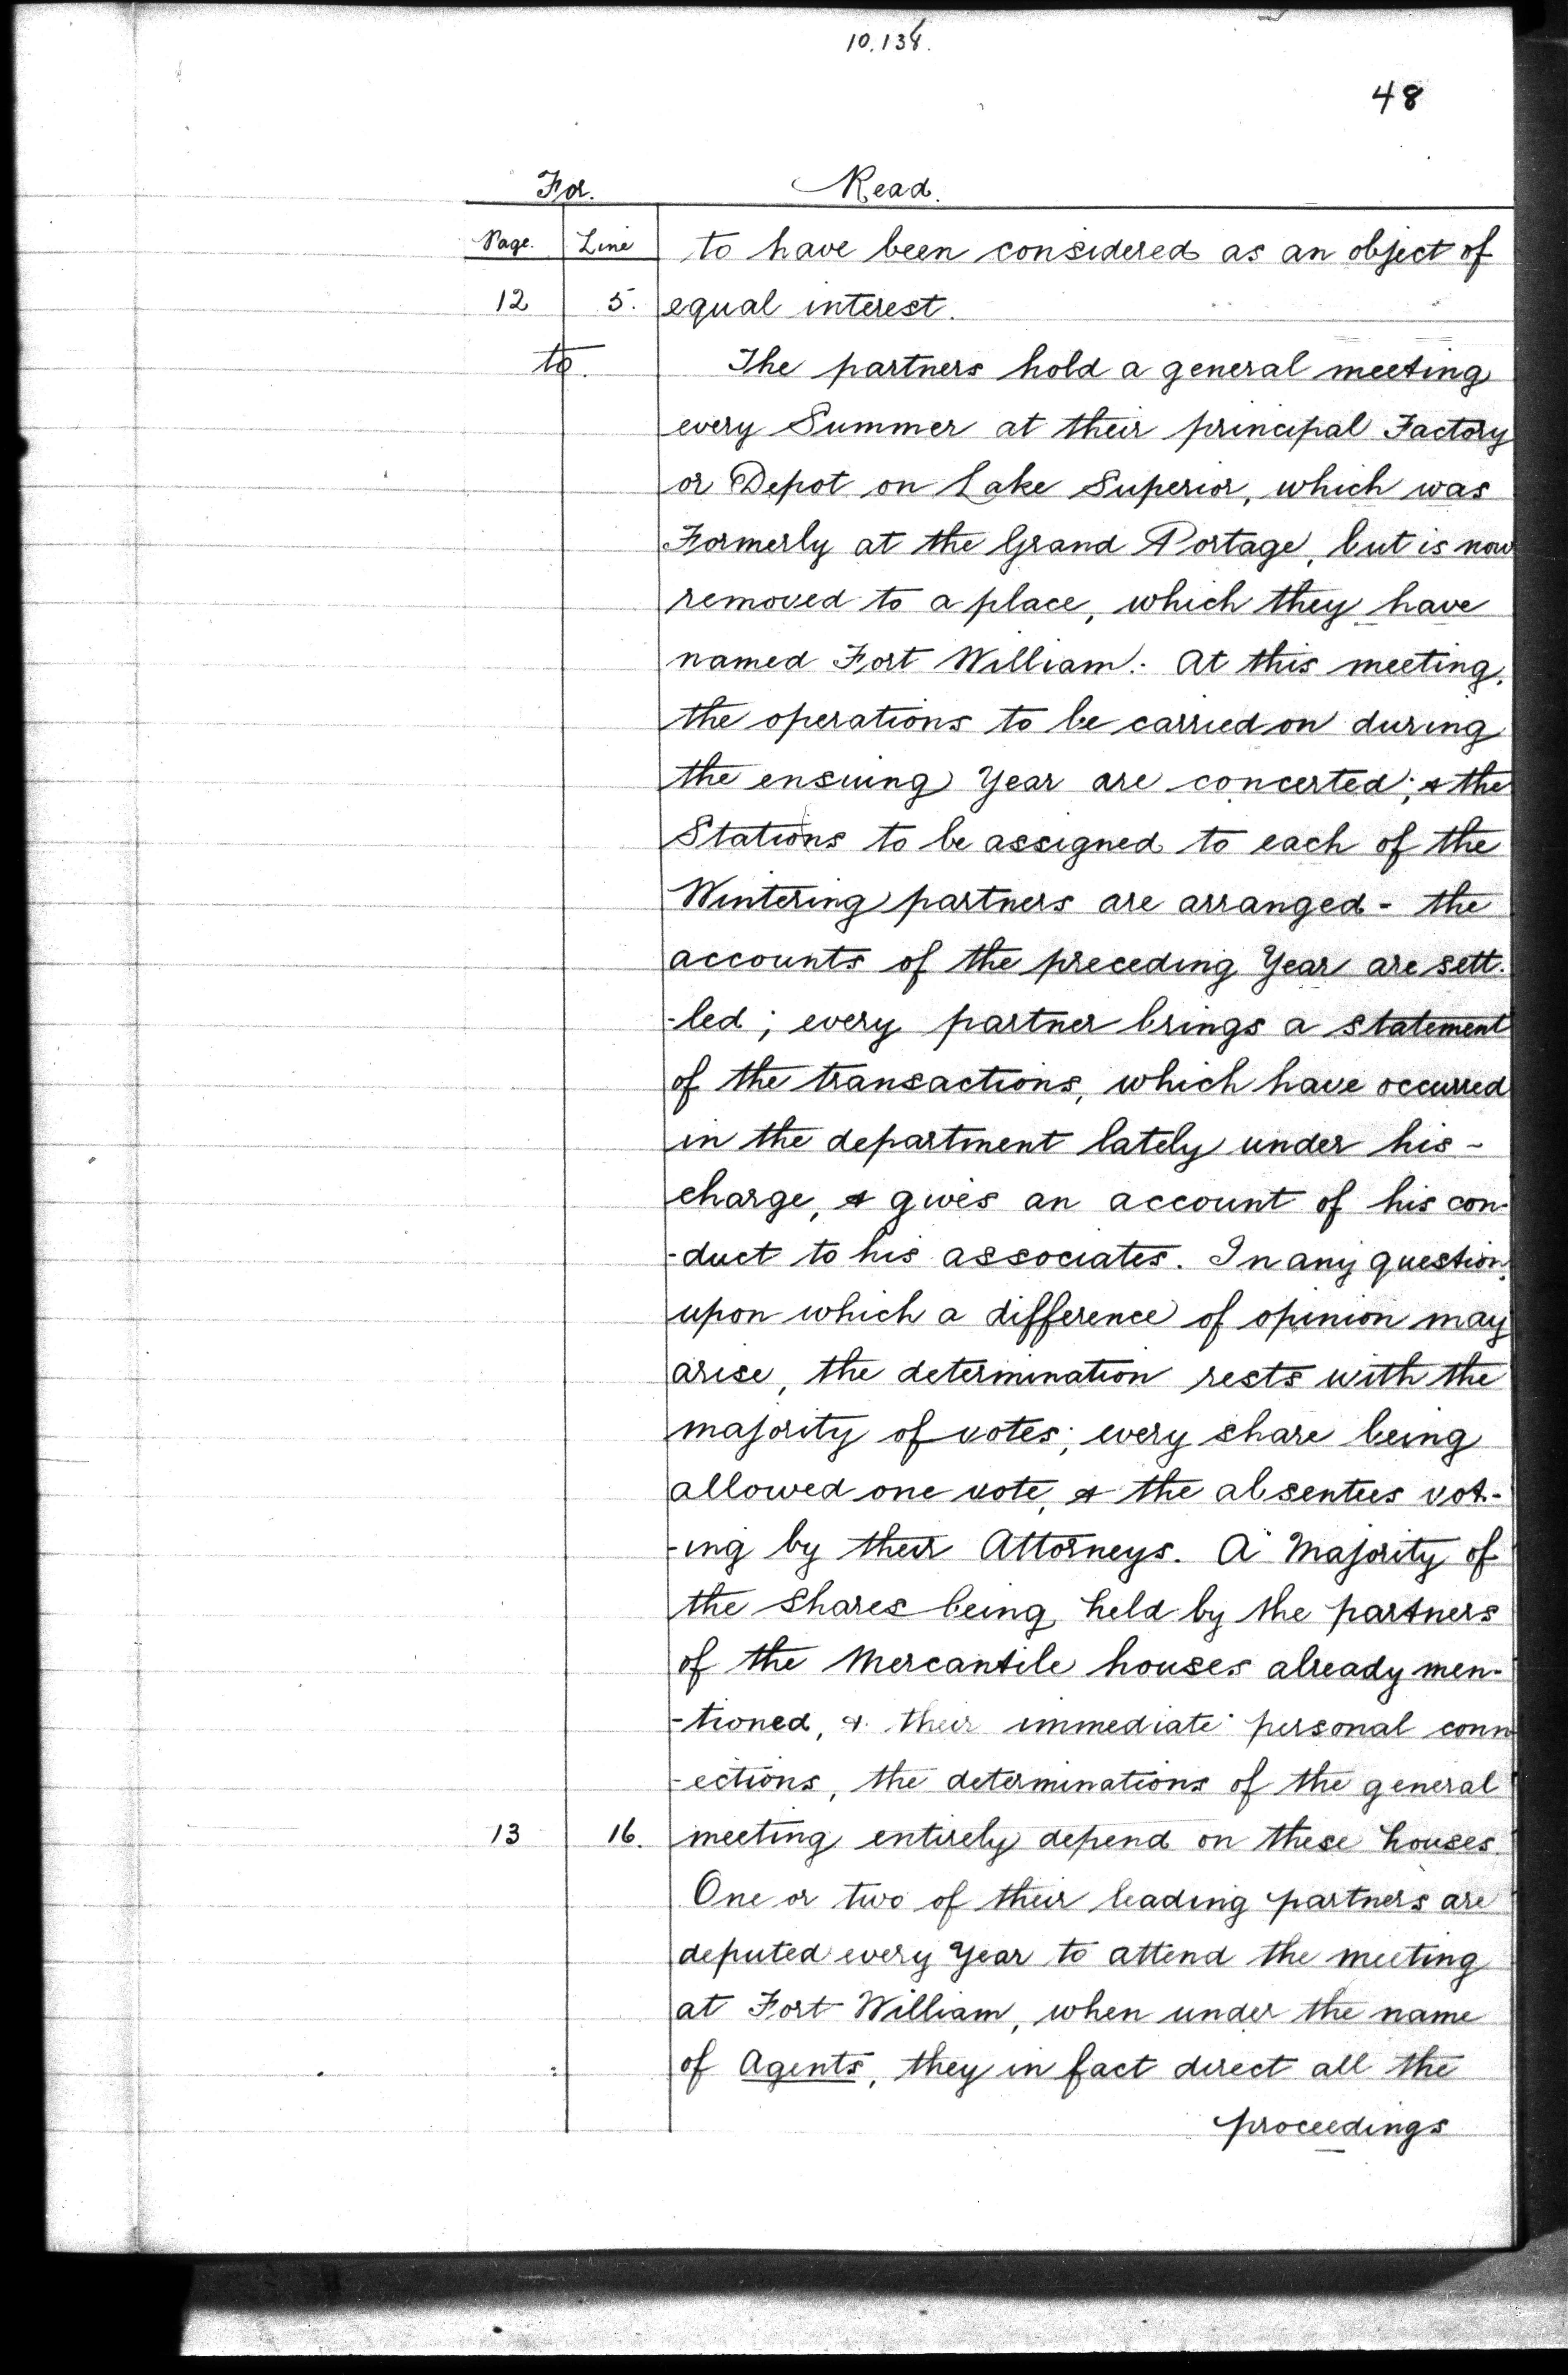 10.134.
48
For. Read.
Page. Line to have been considered as an object of
12 5. equal interest.
to. The partners hold a general meeting
every Summer at their principal Factory
or Depot on Lake Superior, which was
Formerly at the Grand Portage, but is now
removed to a place, which they have
named Fort William. At this meeting,
the operations to be carried on during
the ensuing Year are concerted; & the
Stations to be assigned to each of the
Wintering partners are arranged - the
accounts of the preceding Year are sett-
-led; every partner brings a statement
of the transactions, which have occurred
in the department lately under his -
charge, & gives an account of his con-
-duct to his associates. In any question,
upon which a difference of opinion may
arise, the determination rests with the
majority of votes; every share being
allowed one vote, & the absentees vot-
-ing by their Attorneys. A Majority of
the Shares being held by the partners
of the Mercantile houses already men-
-tioned, & their immediate personal conn
-ections, the determinations of the general
13 16. meeting entirely depend on these houses.
One or two of their leading partners are
deputed every Year to attend the meeting
at Fort William, when under the name
of Agents, they in fact direct all the
proceedings